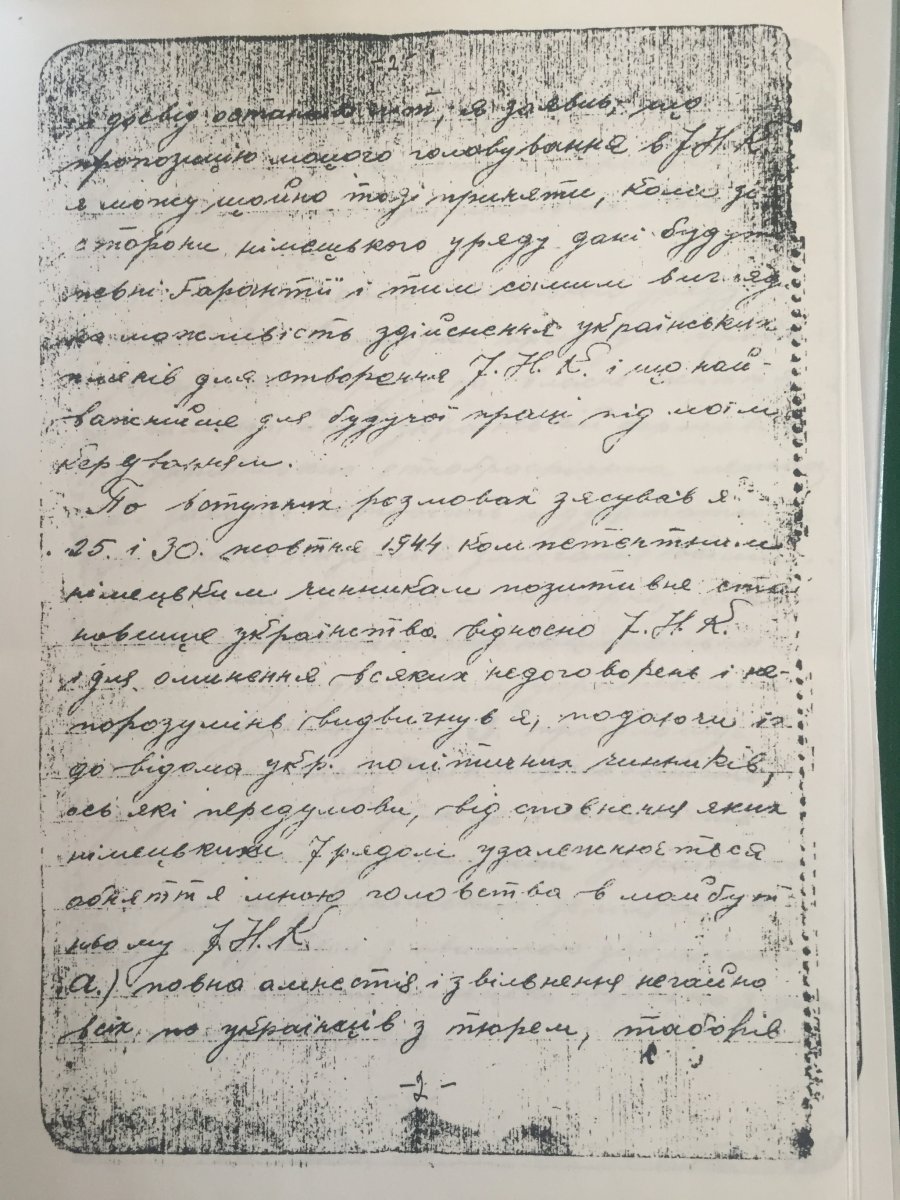 -2-
досвід останніх літ, я заявив, що
пропозицію мойого головування в У.Н.К.
я можу щойно тоді приняти, коли зі
сторони німецького уряду дані будуть
певні Гарантії і тим самим вигляд
на можливість здійснення українських
плянів для створення У.Н.К. і що най-
важнійше для будучої праці під моїм
керуванням.
По вступних розмовах зясував я
25. і 30. жовтня 1944 компетентним
німецьким чинникам позитивне ста
новище українства відносно У.Н.К.
і для оминення всяких недоговорень і не-
порозумінь видвигнув я, подаючи їх
до відома укр. політичних чинників,
ось які передумови, від сповнення яких
німецьким Урядом узалежнюється
обняття мною головства в майбут
ньому У.Н.К.
а.) повна амнестія і звільнення негайно
всіх українців з тюрем, таборів
-2-